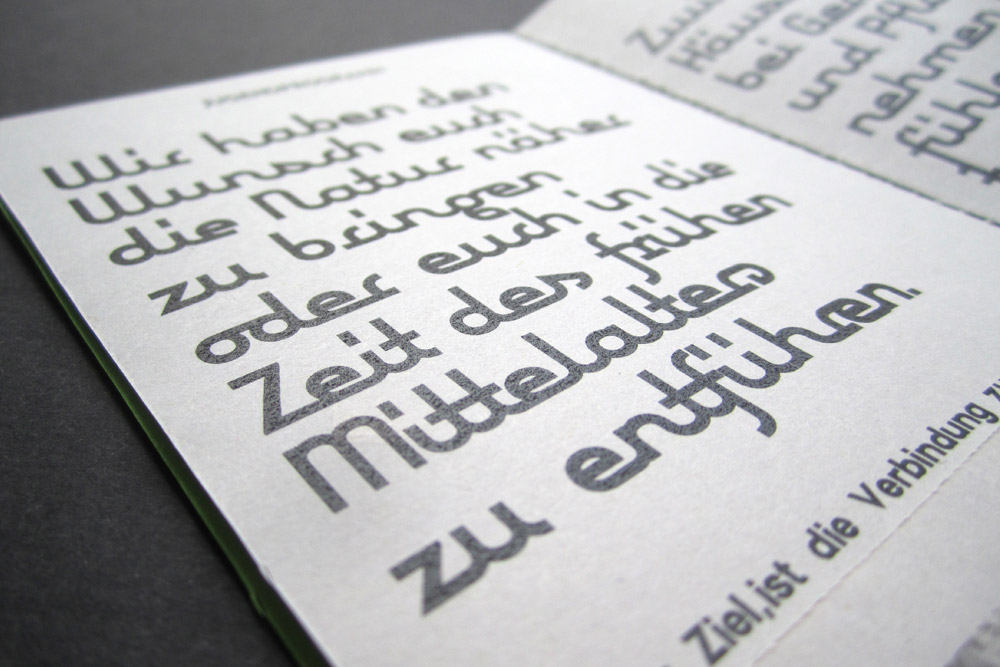 Wir haben den
Wunsch euch
die Natur näher
zu bringen
oder euch in die
Zeit des frühen
Mittelalters
zu entführen.
Ziel,ist die Verbindung
bei
und
nehmen